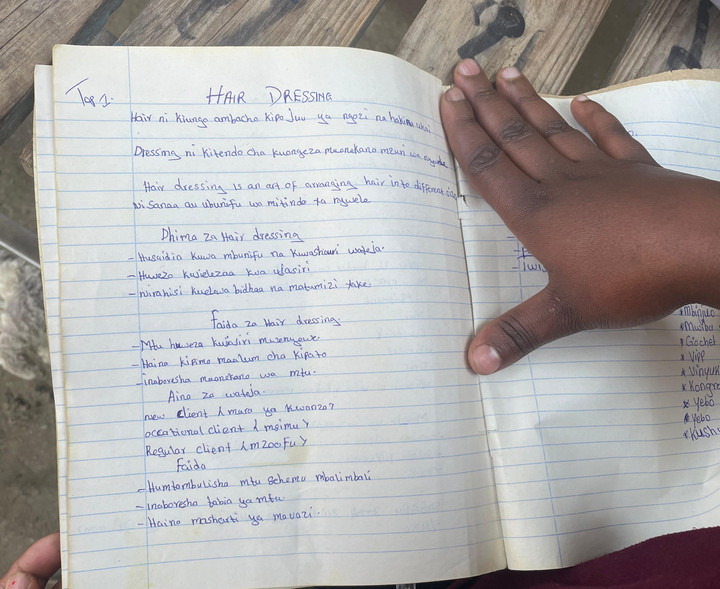 Top 1.
HAIR DRESSING
Hair ni kiungo ambacho kipo Juu ya ngozi na hakina uhai
Dressing ni kitendo cha kuongeza muonekano mzuri wa
Hair dressing is an art of arranging hair into different
ni Sanaa au ubunifu wa mitindo ya nywele
Dhima za Hair dressing
- Husaidia kuwa mbunifu na kuwashauri wateja.
- Huweza kujielezaa kwa ufasiri
- nirahisi kuelewa bidhaa na matumizi yake.
Faida za Hair dressing.
- Mtu huweza kujiajiri mwenyewe.
- Haina kipimo maalum cha kipato
- inaboresha muonekano wa mtu.
Aina za wateja.
new client (mara ya kwanza)
occational client (msimu)
Regular client (mzoefu)
Faida
- Humtambulisha mtu sehemu mbalimbali
- inaboresha tabia ya mtu
- Haina masharti ya mavazi.
* Gochel
* Vipp
* Yebo
* Yebo